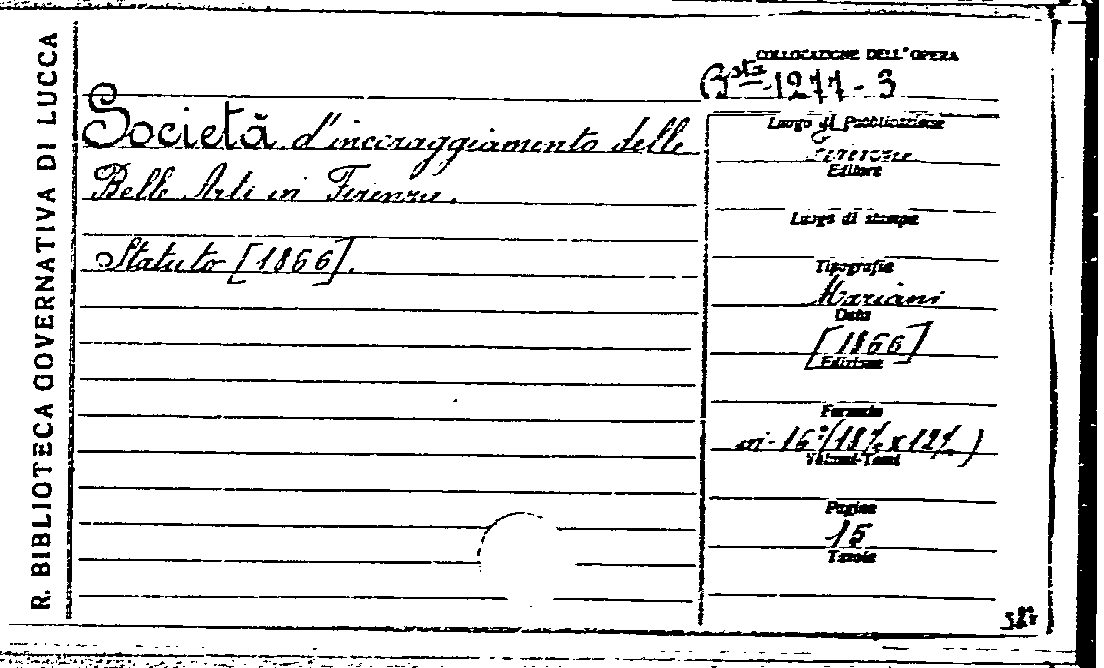 R. BIBLIOTECA GOVERNATIVA DI LUCCA
Società d'incoraggiamento delle
Belle Arti in Firenze.
Statuto [1866].
COLLOCAZIONE DELL'OPERA
Bsta 1277-3
Luogo di Pubblicazione
Firenze
Editore
Luogo di stampa
Tipografia
Mariani
Data
[1866]
Edizione
Formato
in-16º (18½ x 12½)
Volumi-Tomi
Pagine
15
Tavole